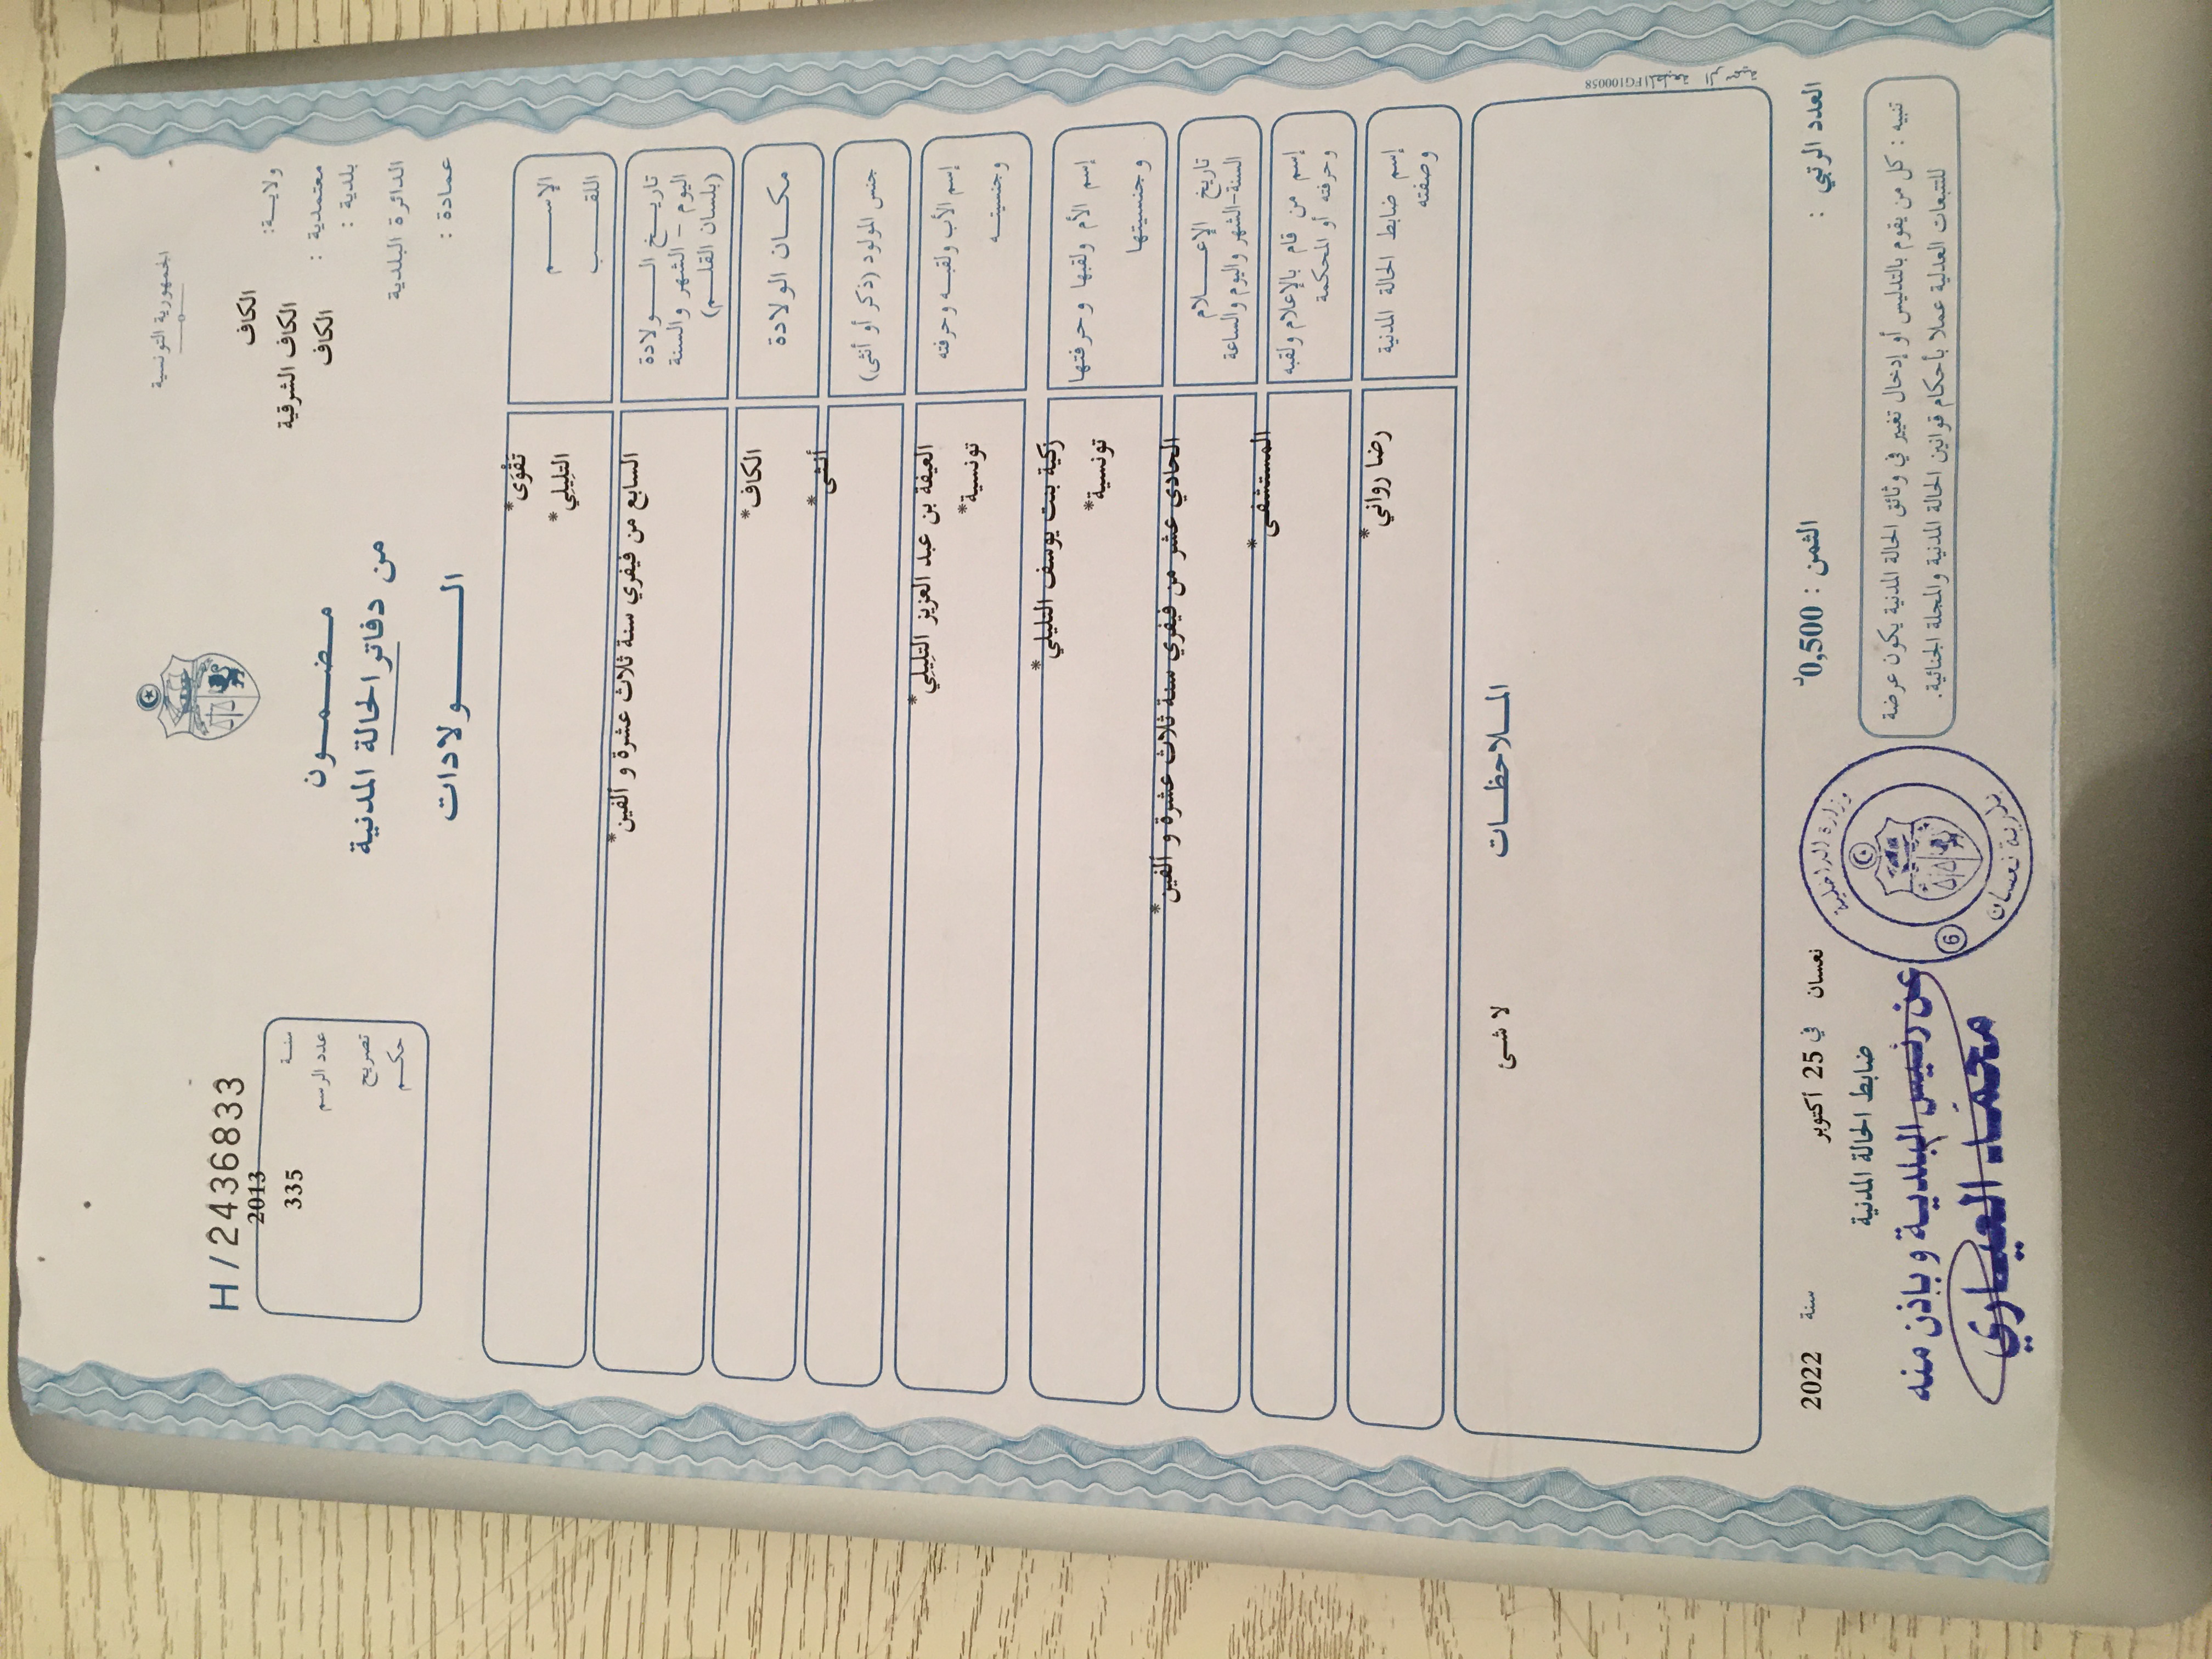 الجمهورية التونسية
ولاية: الكاف
معتمدية : الكاف الشرقية
بلدية : الكاف
الدائرة البلدية
عمادة :
مضمون
من دفاتر الحالة المدنية
الولادات
H/2436833
سنة 2013
عدد الرسم 335
تصريح
حكم
الإسم تَقْوَى*
اللقب التليلي*
تاريخ الولادة
اليوم - الشهر والسنة
(بلسان القلم)
السابع من فيفري سنة ثلاث عشرة و ألفين*
مكان الولادة الكاف*
جنس المولود (ذكر أو أنثى) أنثى*
إسم الأب ولقبه وحرفته
وجنسيته
العيفة بن عبد العزيز التليلي*
تونسية*
إسم الأم ولقبها وحرفتها
وجنسيتها
زكية بنت يوسف التليلي*
تونسية*
تاريخ الإعلام
السنة-الشهر واليوم والساعة
الحادي عشر من فيفري سنة ثلاث عشرة و ألفين*
إسم من قام بالإعلام ولقبه
وحرفته أو المحكمة
المستشفى*
إسم ضابط الحالة المدنية
وصفته
رضا رواني*
الملاحظات
لا شئ
العدد الرتبي :
الثمن : 0,500د
نعسان في 25 أكتوبر سنة 2022
ضابط الحالة المدنية
تنبيه : كل من يقوم بالتدليس أو إدخال تغيير في وثائق الحالة المدنية يكون عرضة
للتتبعات العدلية عملا بأحكام قوانين الحالة المدنية والمجلة الجنائية.
وزارة الداخلية
بلدية نعسان
6
عن رئيس البلدية و باذن منه
محمد العياري